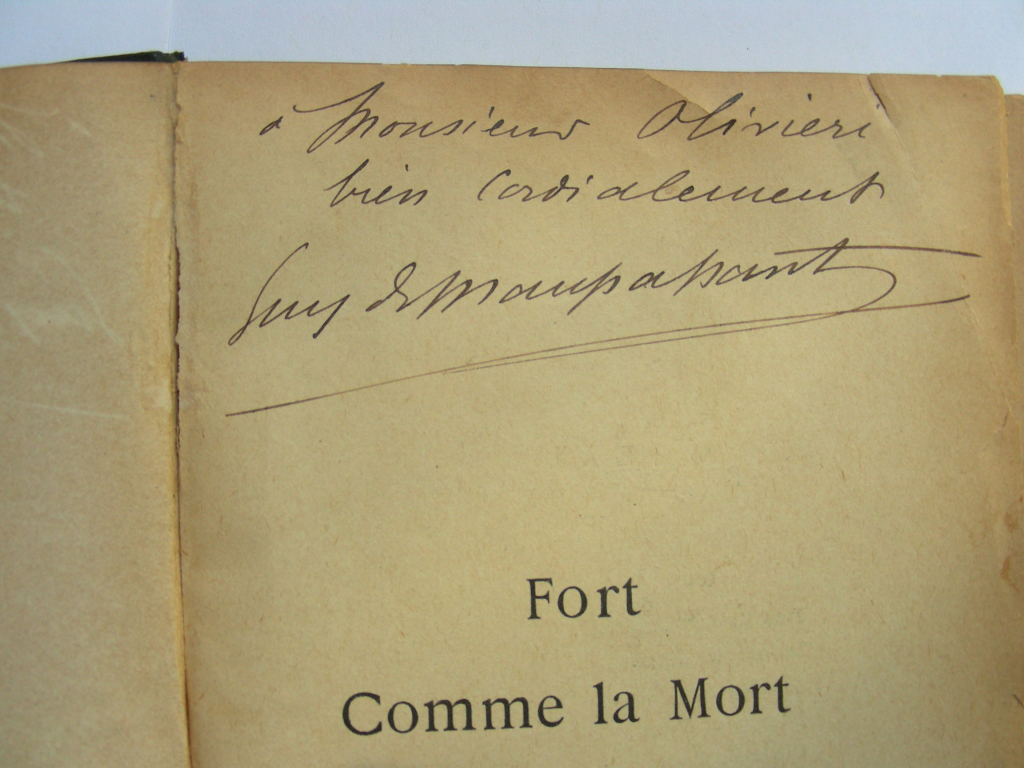 à Monsieur Olivieri
bien cordialement
Guy de Maupassant
Fort
Comme la Mort